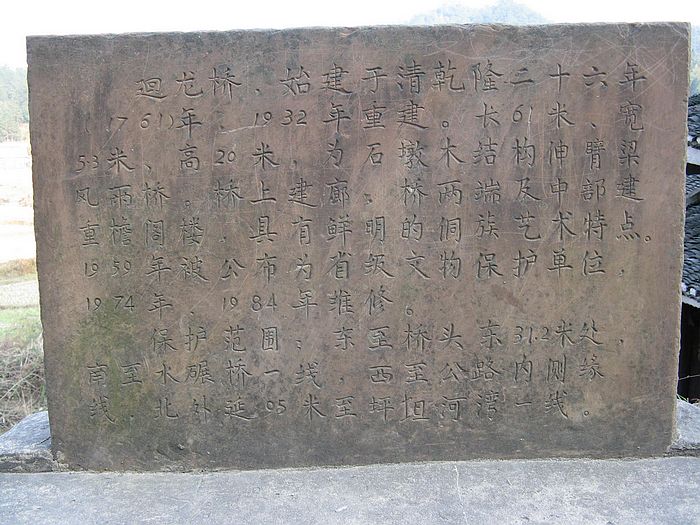 迴龙桥、始建于清乾隆二十六年
(1761)年,1932年重建。长61米、宽
53米、高20米,为石墩木结构伸臂梁
风雨桥。桥上建廊,桥两端及中部建
重檐阁楼,具有鲜明的侗族艺术特点。
1959年被公布为省级文物保护单位,
1974年、1984年维修。
保护范围:东至桥头东31.2米处,
南至水碾桥一线,西至公路内侧缘
线,北外延105米至坪坦河湾一线。